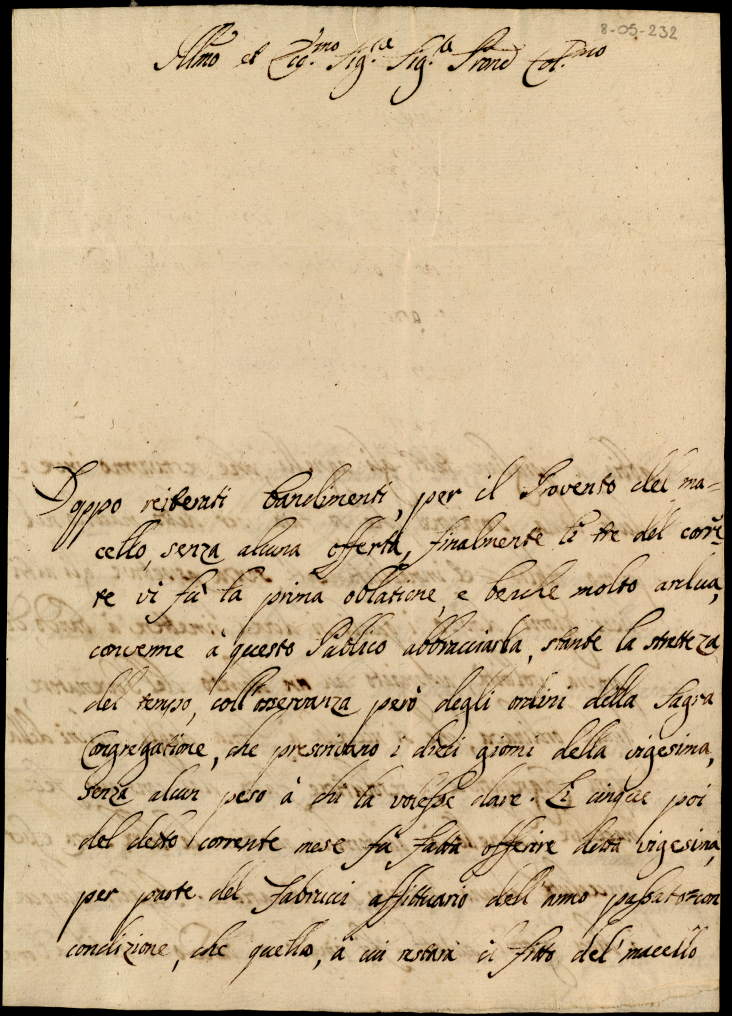 8-05-232
Ill.mo et Ecc.mo Sig.re Sig.re Pron Col.mo
Doppo reiterati bandimenti, per il Provento del ma-
cello, senza alcuna offerta, finalmente li tre del corrẽ-
te vi fù la prima oblatione, e benche molto ardua,
convenne à questo Publico abbracciarla, stante la strettezza
del tempo, coll'osservanza però degli ordini della Sagra
Congregatione, che prescrivano i dieci giorni della vigesima,
senza alcun peso à chi la volesse dare. Li cinque poi
del detto corrente mese fù fatta offerire detta vigesima,
per parte del Fabrucci affittuario dell'anno passato con
condizione, che quello, à cui restarà il fitto del macello